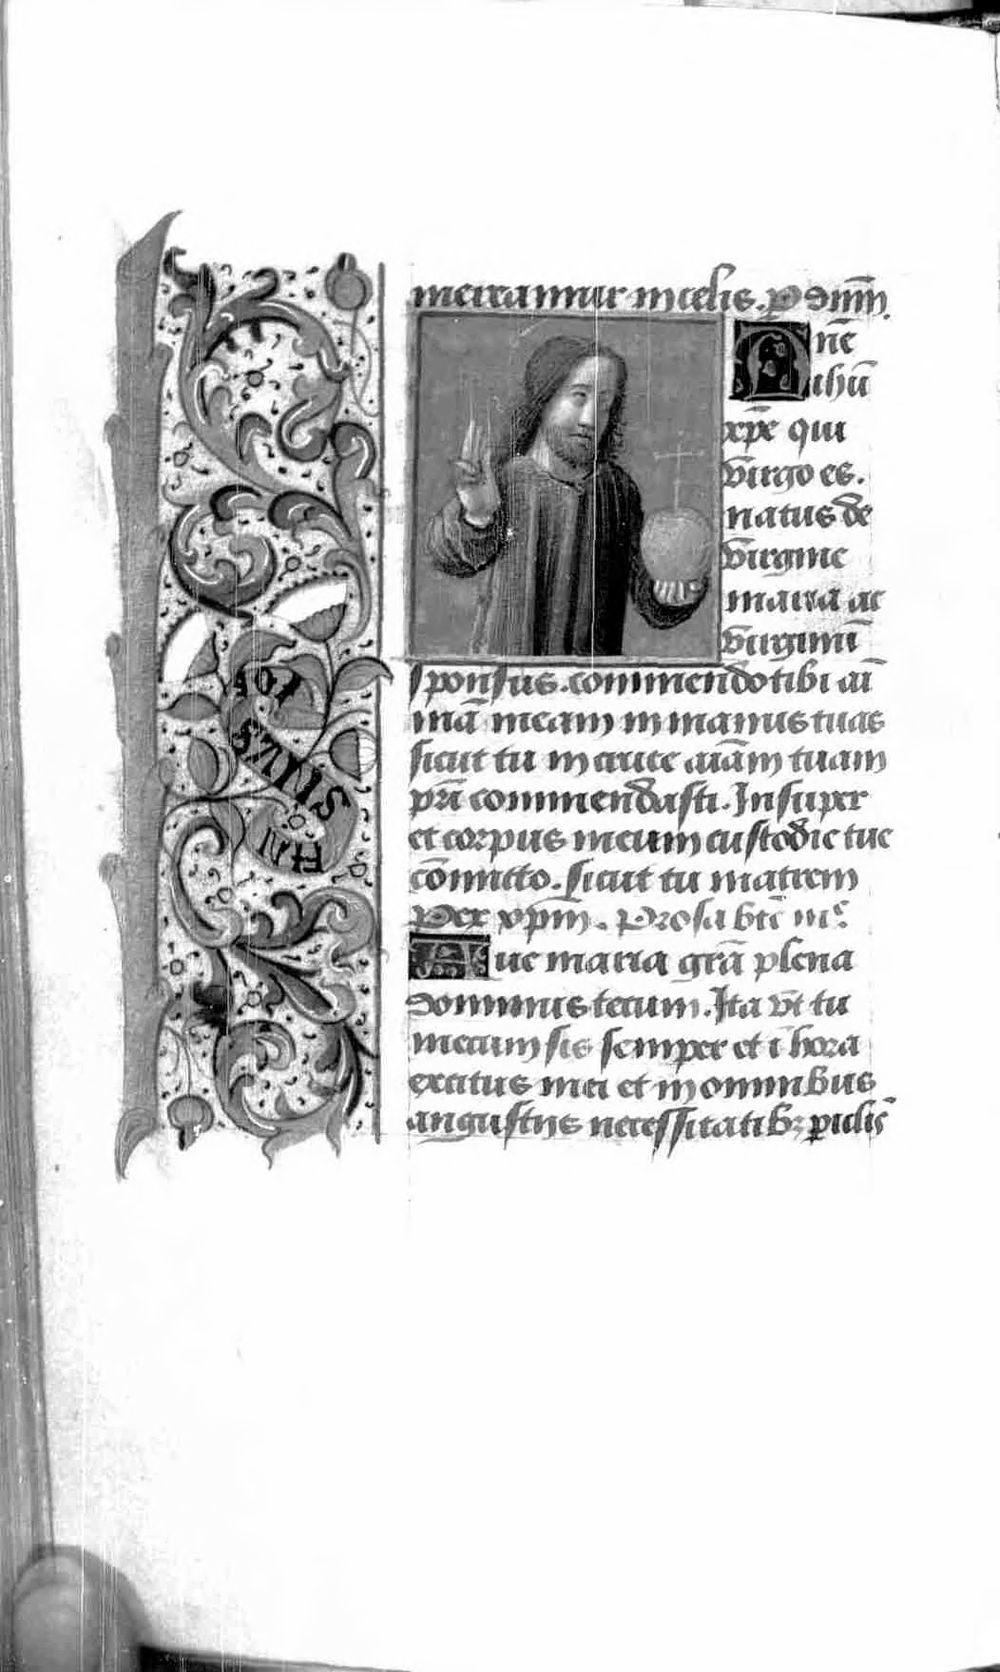 mereamur in celis. P dūm̄.
Dn̄e
ihū
xp̄e qui
virgo es.
natus de
virgine
maria ac
virginū
sponsus. commendo tibi ai
mā meam in manus tuas
sicut tu in cruce aīam tuam
pr̄i commendasti. Insuper
et corpus meum custodie tue
cōmitto. sicut tu matrem
Per xp̄m. Prosa bt̄e
Aue maria grā plena
dominus tecum. Ita vt tu
mecum sis semper et ī hora
exitus mei et in omnibus
angustijs necessitatibꝫ
SANS